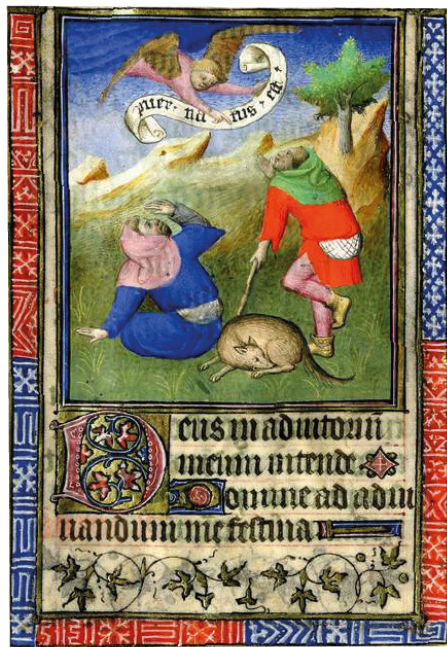 puer · na tus · est ·
Deus in adiutoriu͂
meum intende
Domine ad adiu
uandum me festina